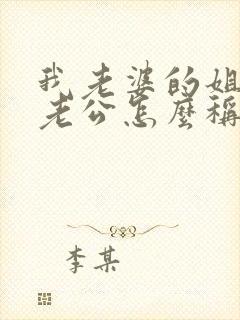 我老婆的姐
老公怎麼稱
李某